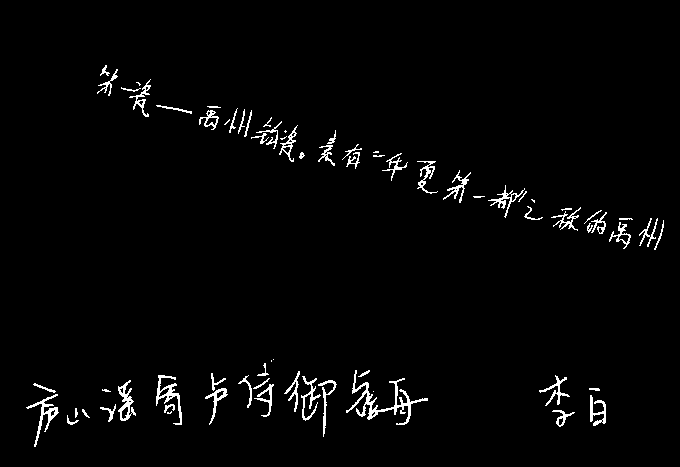 第一瓷——禹州钧瓷。素有“华夏第一都”之称的禹州
庐山谣寄卢侍御虚舟 李白